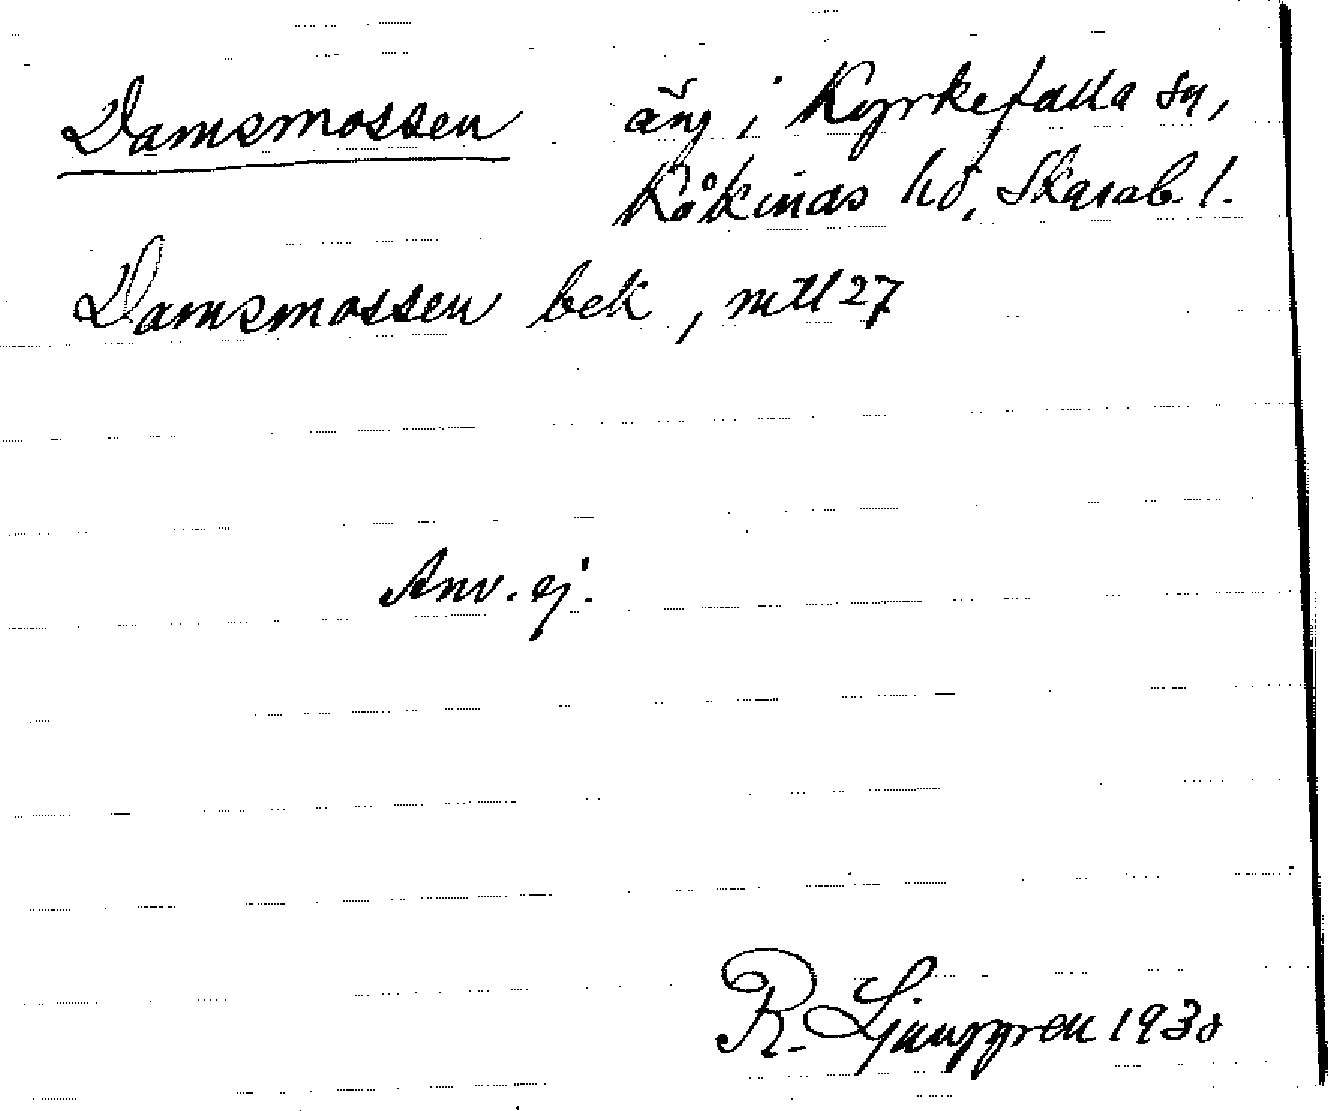 Damsmossen äng i Kyrkefalla sn,
Kåkinds hd, Skarab. l.
Damsmossen bek, mtl 27
Anv. ej.
R. Ljunggren 1930